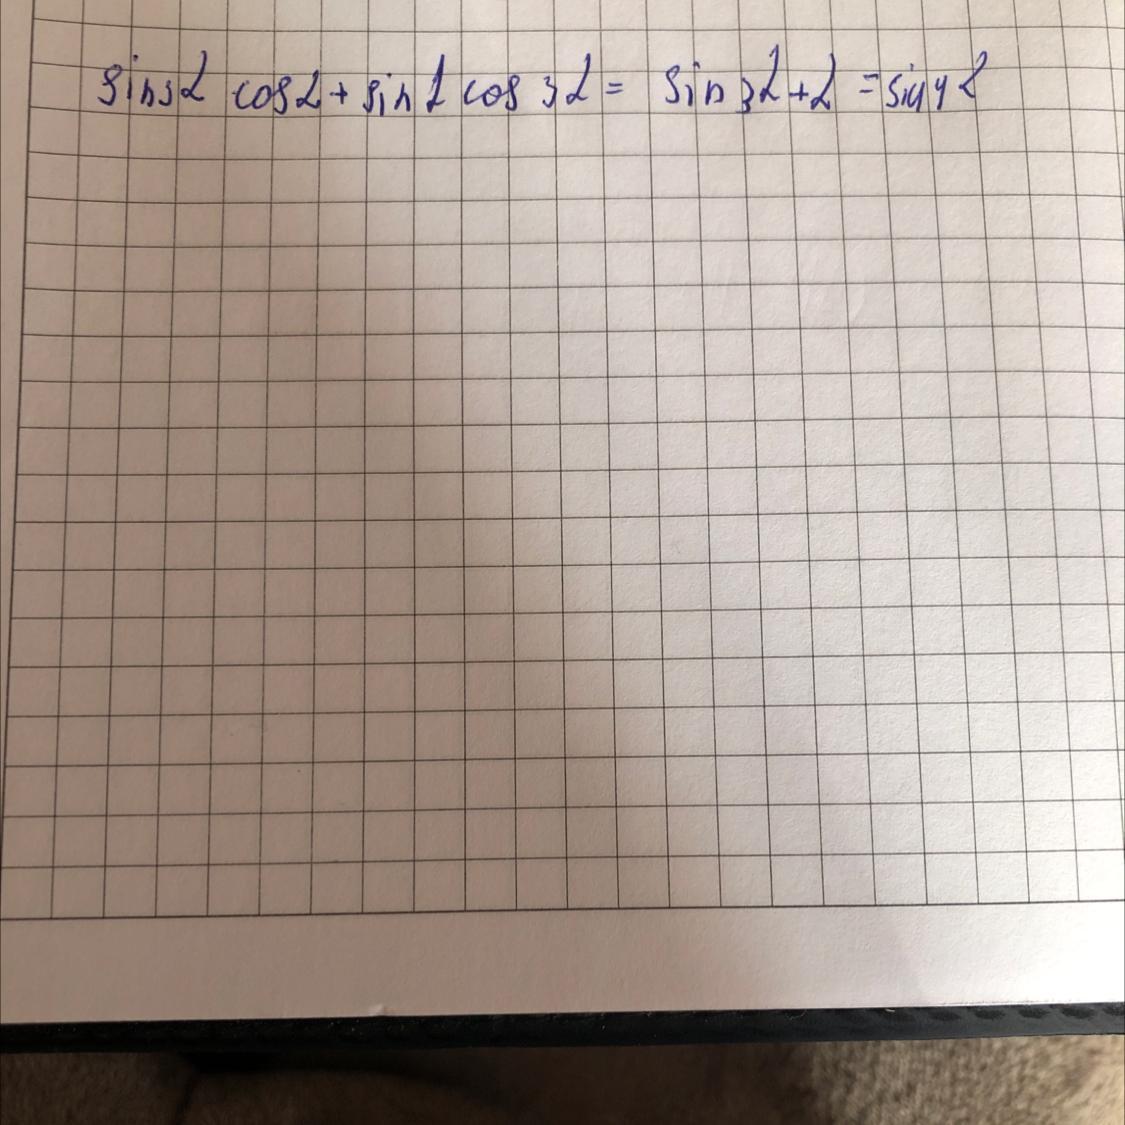 sin3α cosα + sinα cos 3α = sin 3α+α = sin4α